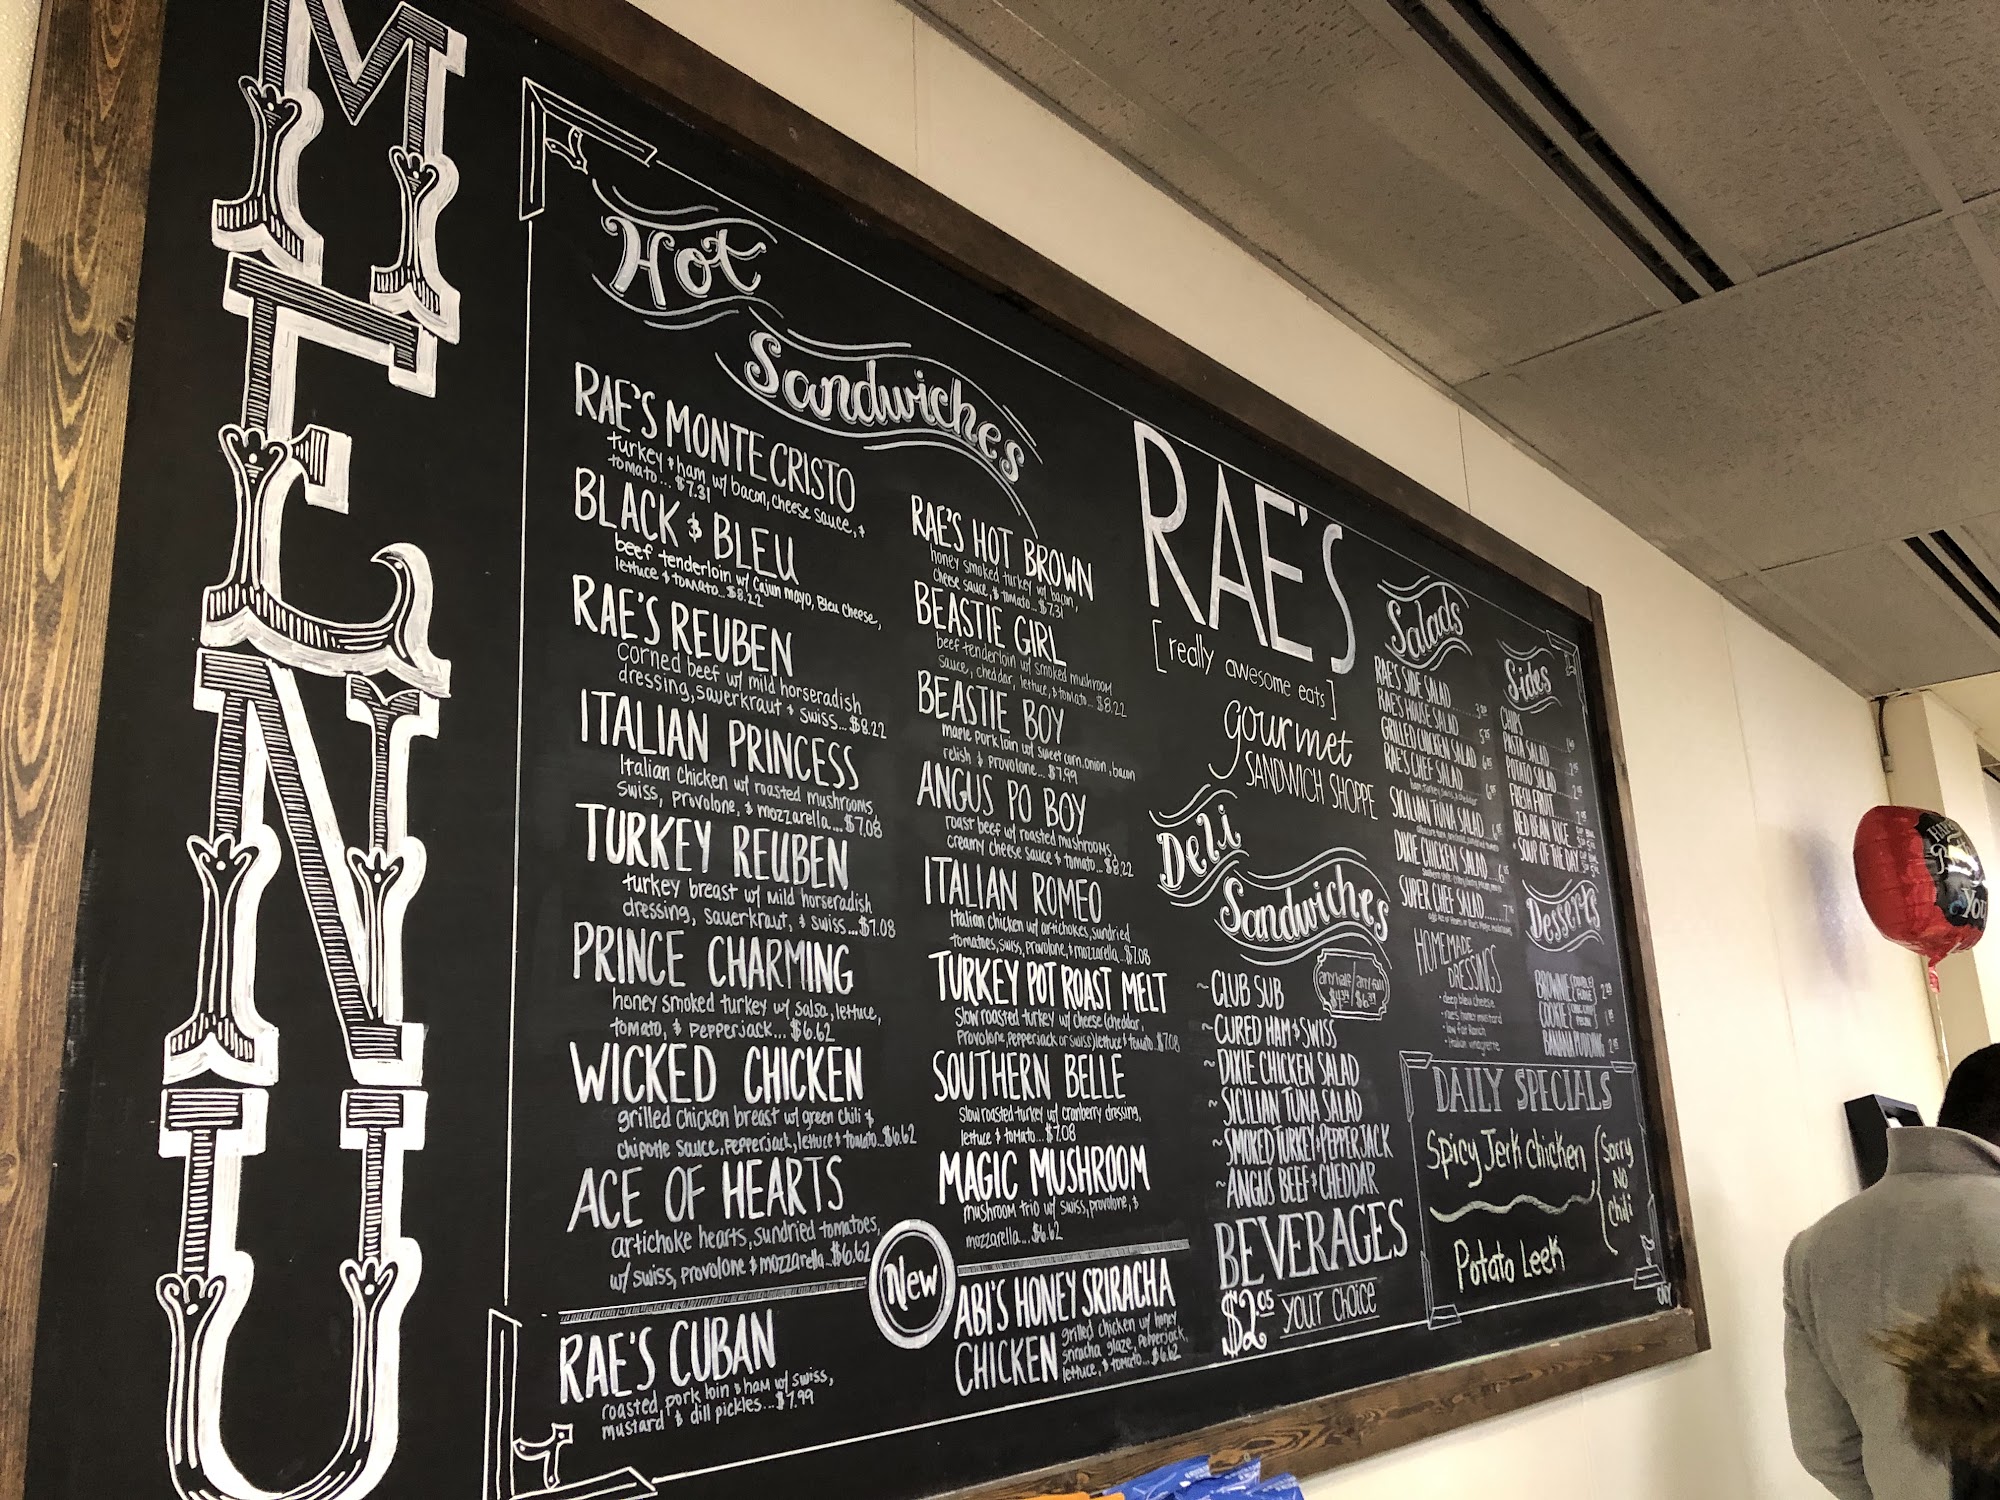 MENU
Hot
Sandwiches
RAE'S MONTE CRISTO
turkey & ham w/ bacon, cheese sauce, &
tomato... $7.31
BLACK & BLEU
beef tenderloin w/ Cajun mayo, Bleu cheese,
lettuce & tomato... $8.22
RAE'S REUBEN
corned beef w/ mild horseradish
dressing, sauerkraut & swiss... $8.22
ITALIAN PRINCESS
Italian chicken w/ roasted mushrooms,
swiss, provolone, & mozzarella... $7.08
TURKEY REUBEN
turkey breast w/ mild horseradish
dressing, sauerkraut, & swiss... $7.08
PRINCE CHARMING
honey smoked turkey w/ salsa, lettuce,
tomato, & Pepperjack... $6.62
WICKED CHICKEN
grilled chicken breast w/ green chili &
chipotle sauce, pepperjack, lettuce & tomato... $6.62
ACE OF HEARTS
artichoke hearts, sundried tomatoes,
w/ swiss, provolone & mozzarella... $6.62
RAE'S CUBAN
roasted, pork loin & ham w/ swiss,
mustard & dill pickles... $7.99
RAE'S HOT BROWN
honey smoked turkey w/ bacon,
cheese sauce, & tomato... $7.31
BEASTIE GIRL
beef tenderloin w/ smoked mushroom
sauce, cheddar, lettuce, & tomato... $8.22
BEASTIE BOY
maple pork loin w/ sweet corn, onion, bacon
relish & provolone... $7.99
ANGUS PO BOY
roast beef w/ roasted mushrooms,
creamy cheese sauce & tomato... $8.22
ITALIAN ROMEO
Italian chicken w/ artichokes, sundried
tomatoes, swiss, provolone, & mozzarella... $7.08
TURKEY POT ROAST MELT
Slow roasted turkey w/ cheese (cheddar,
Provolone, pepperjack or swiss) lettuce & tomato.. $7.08
SOUTHERN BELLE
Slow roasted turkey w/ cranberry dressing,
lettuce & tomato... $7.08
MAGIC MUSHROOM
mushroom trio w/ swiss, provolone, &
mozzarella... $6.62
New
ABI'S HONEY SRIRACHA
CHICKEN
grilled chicken w/ honey
sriracha glaze, pepperjack,
lettuce, & tomato... $6.62
RAE'S
[really awesome eats]
gourmet
SANDWICH SHOPPE
Deli
Sandwiches
any half / any full
$4.34 / $6.39
~CLUB SUB
~CURED HAM & SWISS
~DIXIE CHICKEN SALAD
~SICILIAN TUNA SALAD
~SMOKED TURKEY & PEPPERJACK
~ANGUS BEEF & CHEDDAR
BEVERAGES
$2.05 your choice
Salads
RAE'S SIDE SALAD
RAE'S HOUSE SALAD
GRILLED CHICKEN SALAD
RAE'S CHEF SALAD
SICILIAN TUNA SALAD
DIXIE CHICKEN SALAD
SUPER CHEF SALAD
HOMEMADE
DRESSINGS
• deep bleu cheese
• rae's honey mustard
• low fat Ranch
• Italian vinagrette
Sides
CHIPS
PASTA SALAD
POTATO SALAD
FRESH FRUIT
RED BEAN RICE
SOUP OF THE DAY
Desserts
BROWNIE
COOKIE
BANANA PUDDING
DAILY SPECIALS
Spicy Jerk Chicken
Potato Leek
Sorry
NO
Chili
You